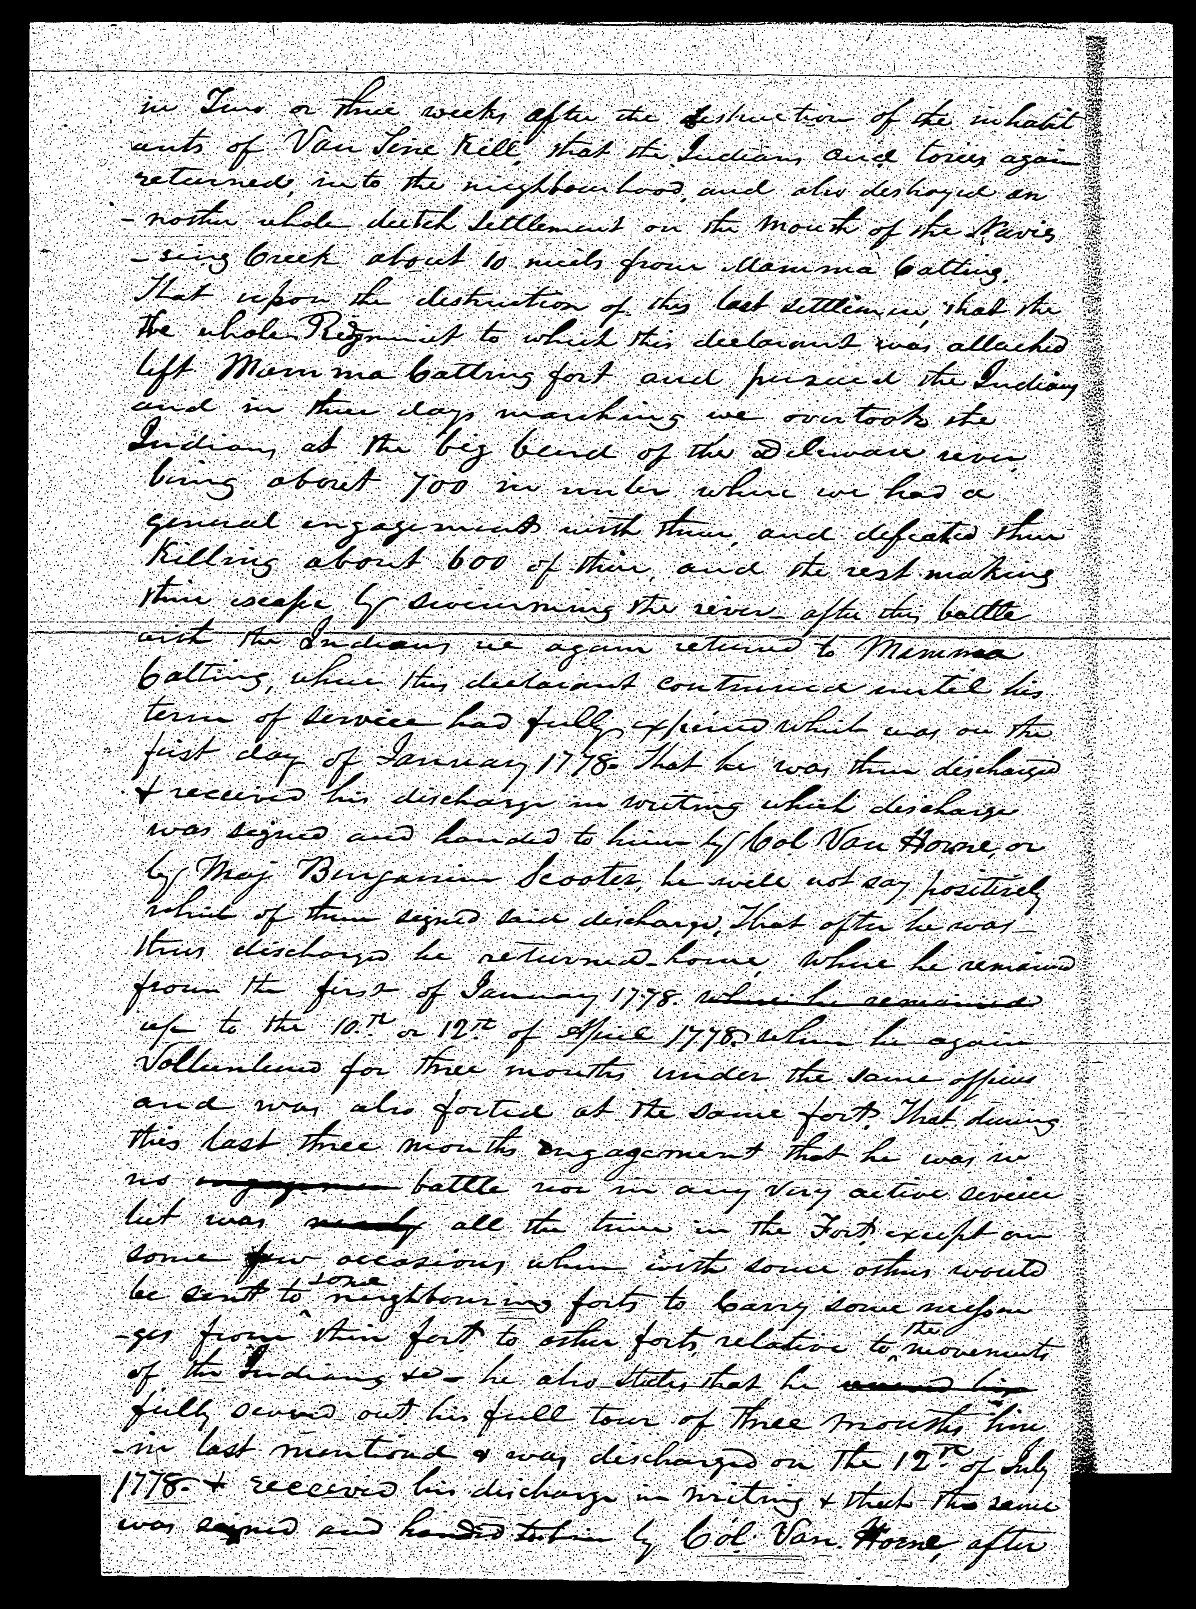 in Two or three weeks after the destruction of the inhabit
ants of Van Tene Kill, that the Indians and tories again
returned, into the neighbourhood, and also destroyed an
- nother whole deutch settlement on the mouth of the Navis
- sing Creek about 10 miels from Mamma Catting.
That upon the distruction of this last settlement, that the
the whole Rigment to which this declarant was attached
left Mamma Catting fort and pursued the Indians
and in three days marching we overtook the
Indians at the big bend of the Deleware river
being about 700 in number where we had a
general engagements with them, and defeated them
Killing about 600 of them, and the rest making
their escape by swimming the river - after this battle
with the Indians we again returned to Mamma
Catting, where this declarant continued until his
term of service had fully expired which was on the
first day of January 1778. That he was then discharged
& received his discharge in writing which discharge
was signed and handed to him by Col Van Horne, or
by Maj Benjamin Scooter, he will not say positively
which of them signed said discharge, That after he was
thus discharged he returned home, where he remained
from the first of January 1778. where he remained
up to the 10.th or 12.th of April 1778. when he again
Vollunteered for three months under the same officers
and was also forted at the same fort. That during
this last three months engagement that he was in
no engagemen battle nor in any very active service
but was nearly all the time in the Fort except on
some few occasions when with some others would
be sent to some neighbouring forts to Carry some messen
- ges from their fort to other forts relative to the movements
of the Indians &c - he also States that he
fully served out his full tour of three months here
- in last mentiond & was discharged on the 12.th of July
1778. & received his discharge in writing & that the same
was signed and handed to him by Col. Van Horne, after